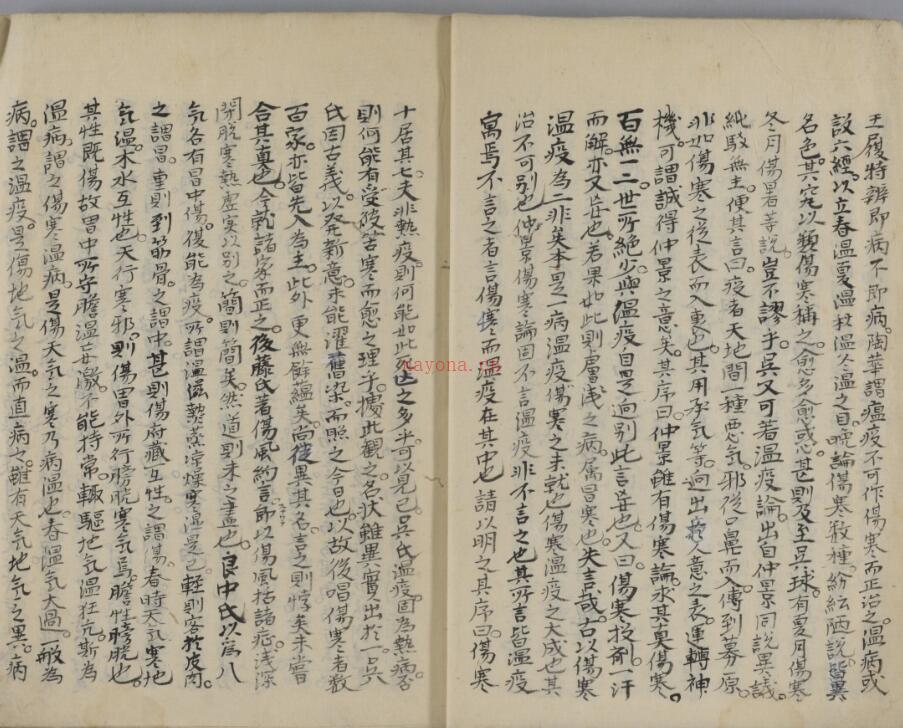 王履特辨即病不即病。陶華謂瘟疫不可作傷寒而正治之。温病或
設六經以立春温夏温秋温冬温之目。晩論傷寒数種紛紜陋説皆異
名色。其究以類傷寒稱之。愈多愈惑。甚則及至呉球有夏月傷寒
冬月傷暑等説。豈不謬乎。呉又可著温疫論出自仲景同説異議。
純駁無主。便其言曰。疫者天地間一種悪気。邪従口鼻而入。傳到募原。
非如傷寒之従表而入裏也。其用承気等。迥出於人意之表。運轉神
機。可謂誠得仲景之意矣。其序曰。仲景雖有傷寒論。求其真傷寒。
百無一二。世所絶少。與温疫自是迥別。此言甚也。又曰。傷寒投剤一汗
而解。亦又甚也。若果如此則層淺之病。属冒寒也。失言哉。古以傷寒
温疫為二非矣。本是一病。温疫傷寒之未就也。傷寒温疫之大成也。其
治不可別也。仲景傷寒論固不言温疫。非不言之也。其所言皆温疫
寓焉。不言之者言傷寒而温疫在其中也。請以明之。其序曰。傷寒
十居其七。夫非熱疫。則何能如此死亡之多乎。可以見已。呉氏温疫固為熱病。否
則何能有受破苦寒而愈之理乎。據此観之。名状雖異実出於一。呉
氏因古義。以発新意。未能濯舊染。而照之今日也。以故後唱傷寒者数
百家。亦皆先入為主。此外更無餘蘊矣。尚徙異其名。言之則悖矣。未嘗
合其真也。今就諸家而正之。後藤氏著傷風約言。即以傷風括諸症。淺深
開脱寒熱虚実以別之。簡則簡矣。然道則未之盡也。良中氏以為八
気各有冒中傷。復能為疫。所謂温温熱蒸涼燥寒湿是已。軽則客於皮肉。
之謂冒。重則到筋骨。之謂中。甚則傷府蔵互性。之謂傷。春時天気寒地
気温。木水互性也。天行寒邪。則傷胃外所行膀胱寒気焉。膽性膀胱也。
其性既傷故胃中所守膽温甚激。不能持常。輙驅地気温狂亢。斯為
温病。謂之傷寒温病。是傷天気之寒乃病温也。春温気大過。一般為
病。謂之温疫。是傷地気之温。而直病之。雖有天気地気之異。病